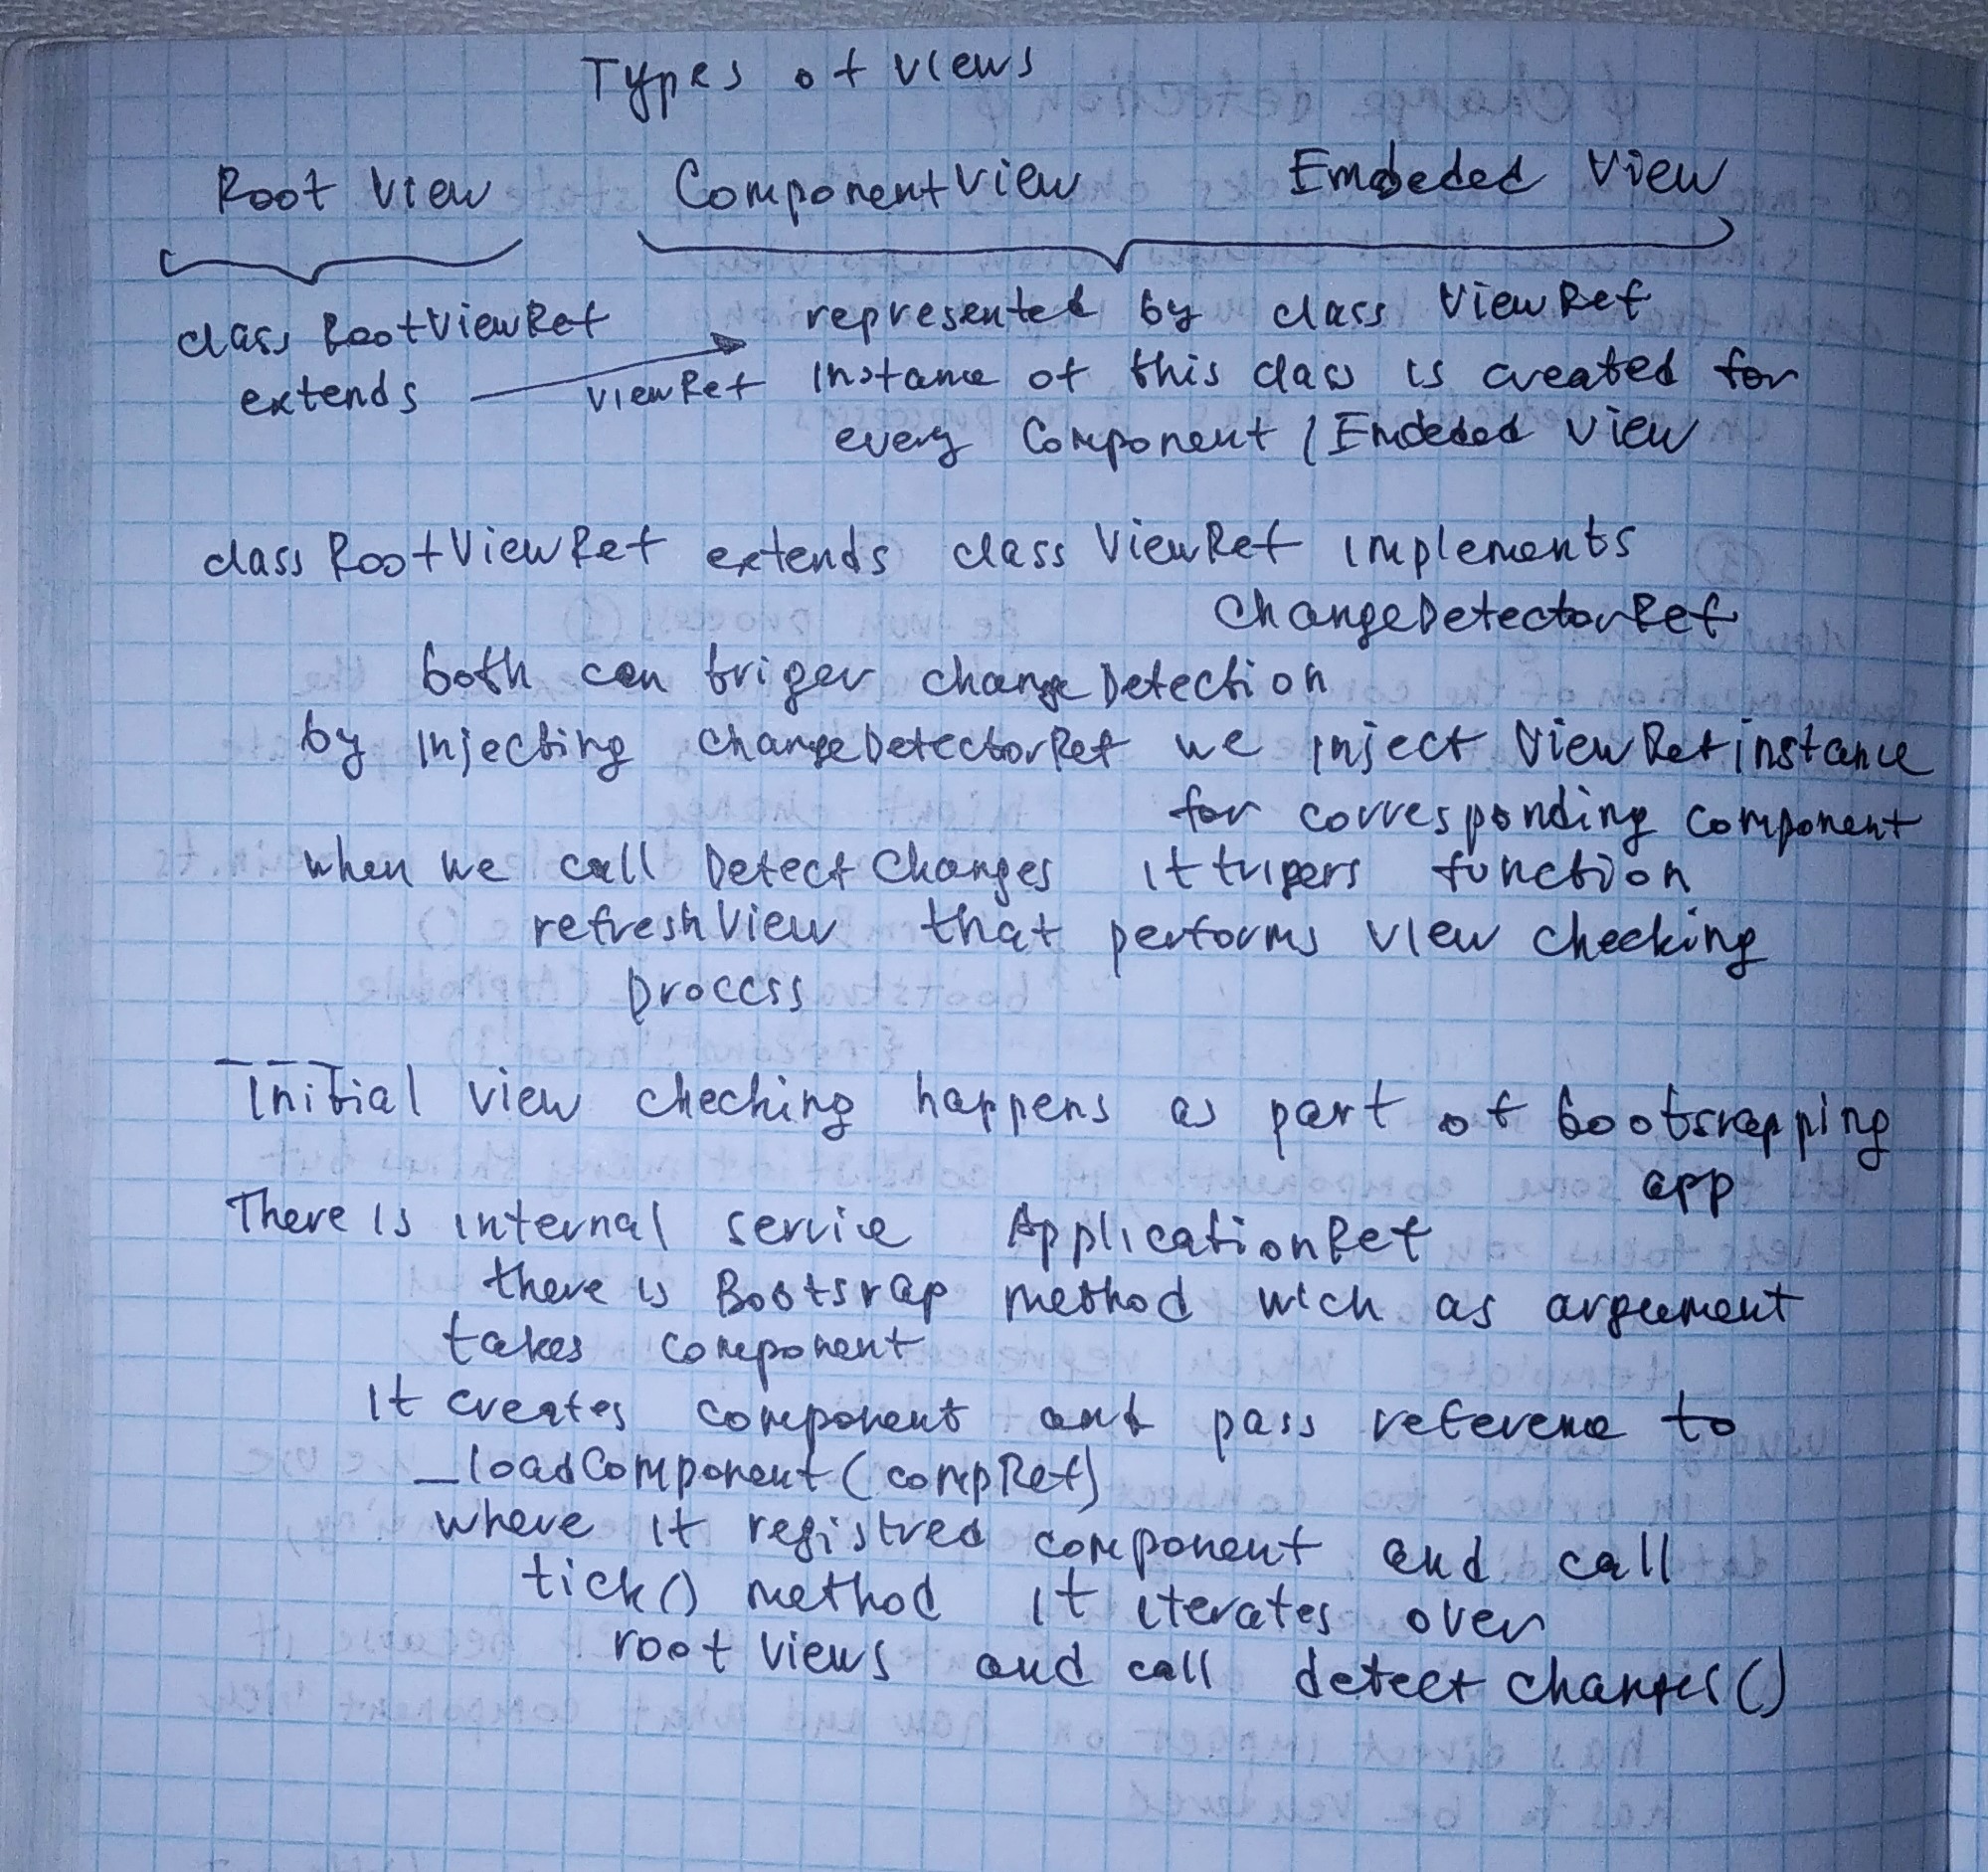 Types of views
Root View ComponentView Embeded View
class RootViewRef
extends viewRef
represented by class ViewRef
instance of this class is created for
every Component / Emdeded view
class RootViewRef extends class ViewRef implements
ChangeDetectorRef
both can triger changeDetection
by injecting changeDetectorRef we inject ViewRef instance
for corresponding component
when we call DetectChanges it trigers function
refreshView that performs view checking
process
Initial view checking happens as part of bootsrapping
app
There is internal service ApplicationRef
there is Bootsrap method wich as argument
takes component
it creates component and pass reference to
_loadComponent(compRef)
where it registred component and call
tick() method it iterates over
root views and call detect changes()